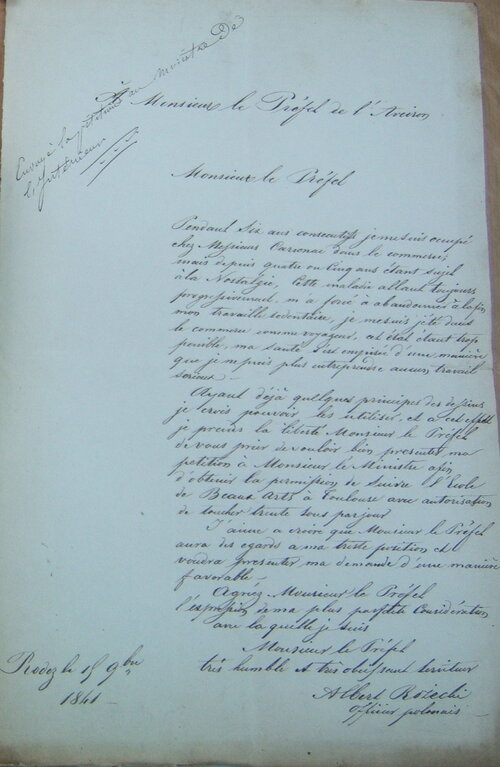 Envoyé la pétition au ministre De
l'Intérieur
À Monsieur le Préfet de l'Aveiron
Monsieur le Préfet
Pendant Six ans consecutifs je me suis occupé
chez Messieurs Carsonac dans le commerce;
mais depuis quatre ou Cinq ans étant sujet
à la Nostalgie, Cette maladie allant toujours
progressivement m'a forcé à abandonner à la fin
mon travaille sedentaire, je me suis jété dans
le commerce comme voyageur, cet état étant trop
penible, ma santé s'est empirée d'une manière
que je ne puis plus entreprendre aucun travail
serieux.
Ayant déjà quelques principes des dessins
je crois pouvoir les utiliser, et a cet effet
je prens la liberté Monsieur le Prefet
de vous prier de vouloir bien presenter ma
petition à Monsieur le Ministre afin
d'obtenir la permission de Suivre l'Ecole
de Beaux Arts à Toulouse avec autorisation
de toucher trente sous par jour
J'aime a croire que Monsieur le Préfet
aura des egards a ma triste position et
voudra presenter ma demande d'une manière
favorable.
Agréez Monsieur le Préfet
l'expression de ma plus parfaite Considération
avec laquelle je suis
Monsieur le Préfet
très humble et très obeissant serviteur
Albert Rozecki
officier polonais
Rodez le 15 9bre
1841